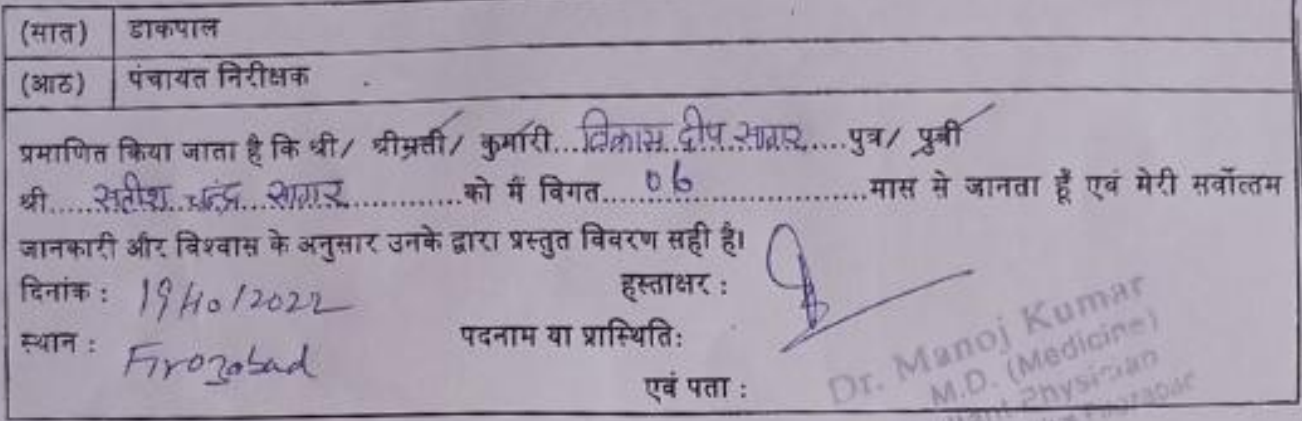 (सात) डाकपाल
(आठ) पंचायत निरीक्षक
प्रमाणित किया जाता है कि श्री/ श्रीमती/ कुमारी...विकास दीप सागर.....पुत्र/ पुत्री
श्री.....सतीश चन्द्र सागर.............को मैं विगत....06......................मास से जानता हूँ एवं मेरी सर्वोत्तम
जानकारी और विश्वास के अनुसार उनके द्वारा प्रस्तुत विवरण सही है।
दिनांक : 19/10/2022 हस्ताक्षर :
स्थान : Firozabad पदनाम या प्रास्थिति:
एवं पता :
Dr. Manoj Kumar
M.D. (Medicine)
Physician